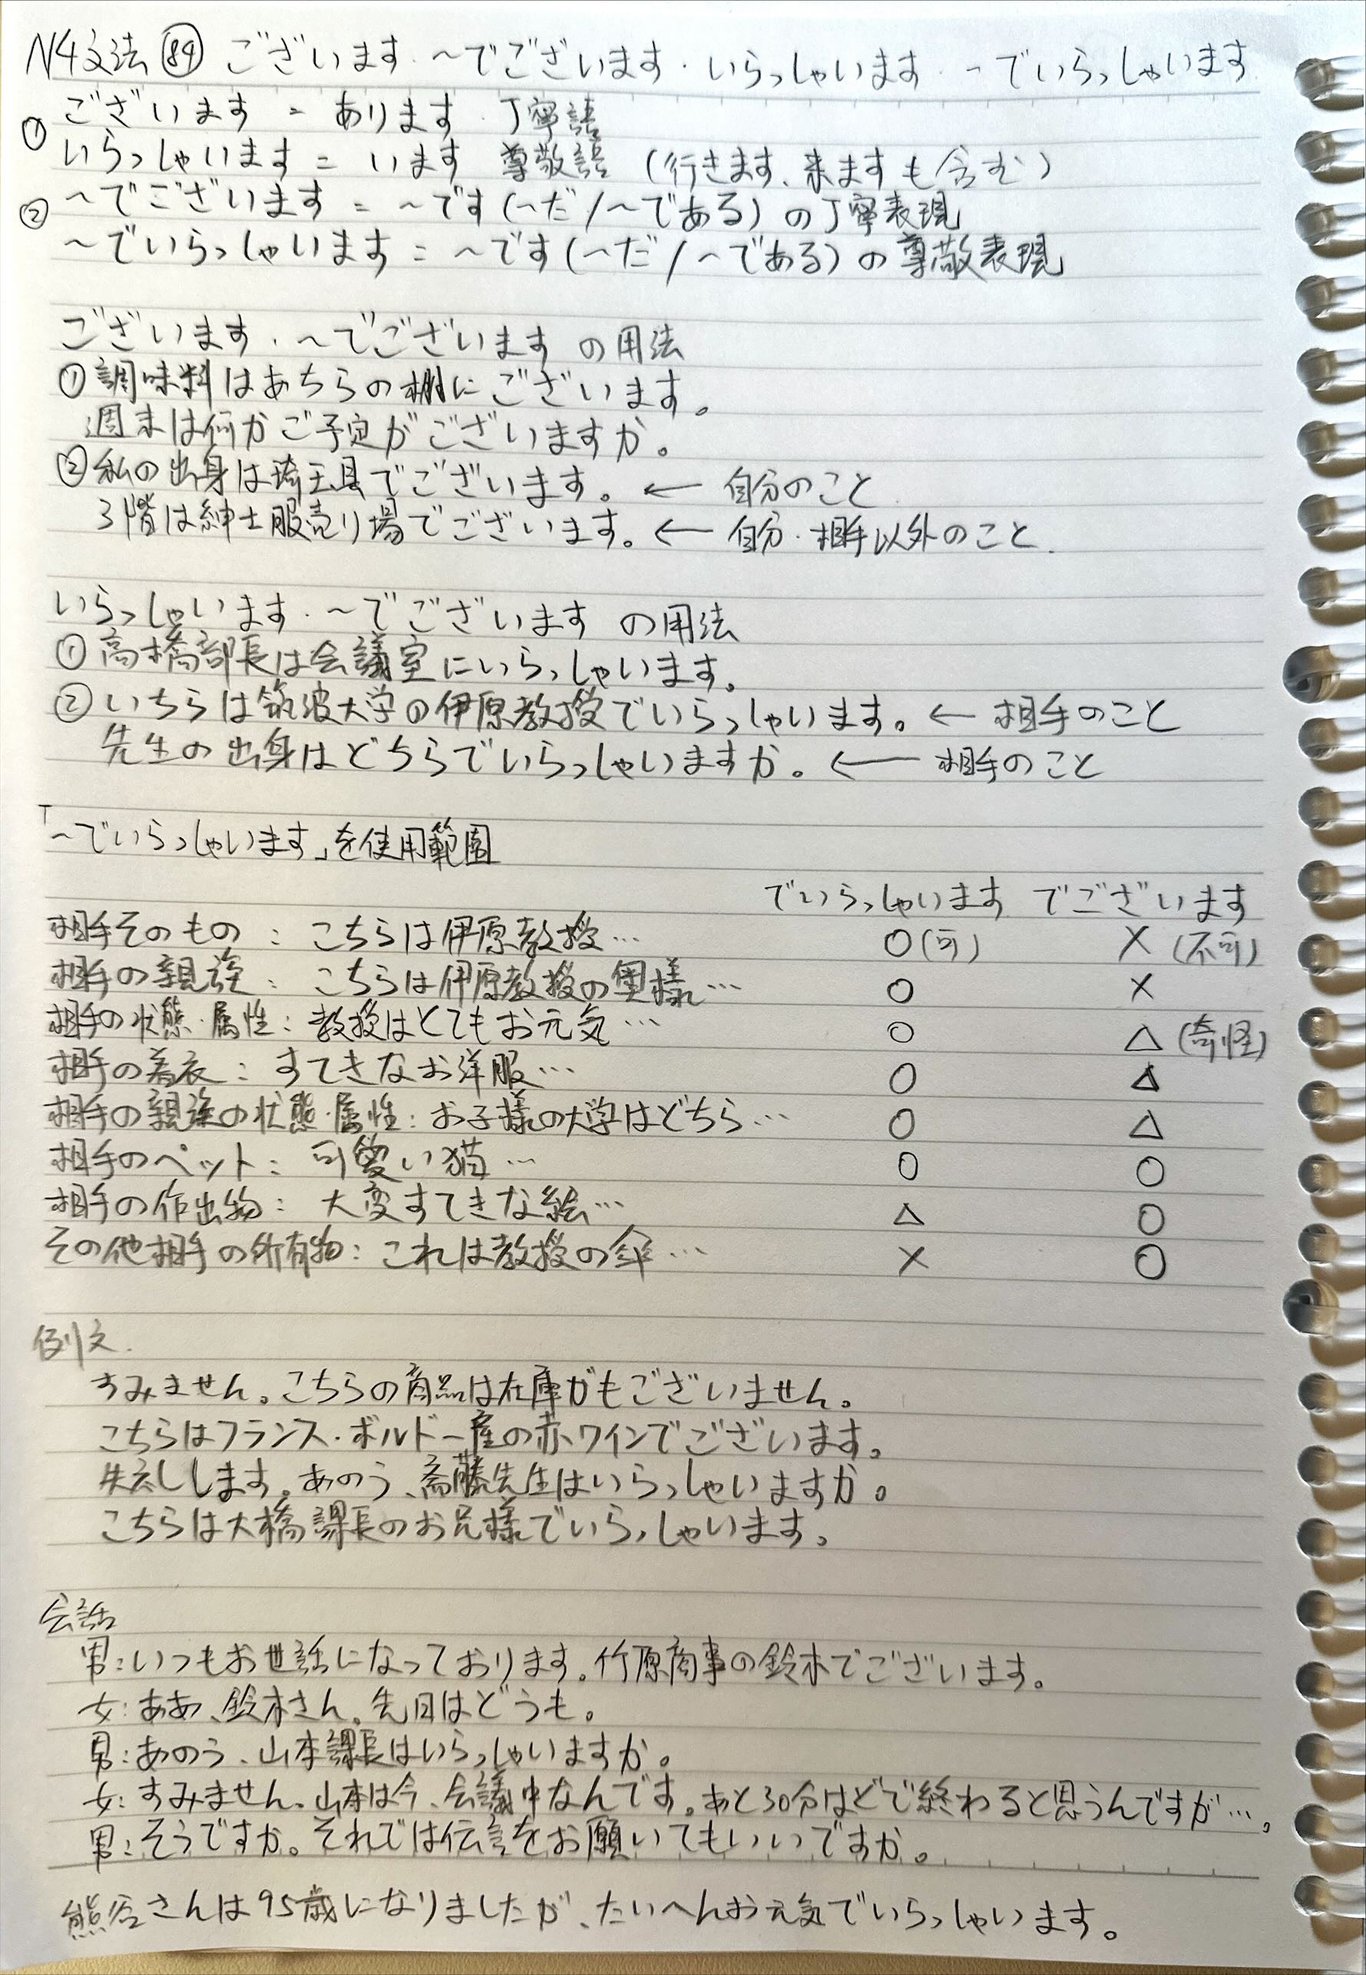 N4文法 84 ございます・〜でございます・いらっしゃいます・〜でいらっしゃいます
① ございます = あります 丁寧語
いらっしゃいます = います 尊敬語 (行きます、来ますも含む)
② 〜でございます = 〜です(〜だ/〜である)の丁寧表現
〜でいらっしゃいます = 〜です(〜だ/〜である)の尊敬表現
ございます・〜でございます の用法
① 調味料はあちらの棚にございます。
週末は何かご予定がございますか。
② 私の出身は埼玉県でございます。 ← 自分のこと
3階は紳士服売り場でございます。 ← 自分・相手以外のこと.
いらっしゃいます・〜でございます の用法
① 高橋部長は会議室にいらっしゃいます。
② いちらは筑波大学の伊原教授でいらっしゃいます。 ← 相手のこと
先生の出身はどちらでいらっしゃいますか。 ← 相手のこと
「〜でいらっしゃいます」を使用範囲
でいらっしゃいます でございます
相手そのもの : こちらは伊原教授… ○(可) ×(不可)
相手の親族 : こちらは伊原教授の奥様… ○ ×
相手の状態・属性 : 教授はとてもお元気… ○ △(奇怪)
相手の着衣 : すてきなお洋服… ○ △
相手の親族の状態・属性 : お子様の大学はどちら… ○ △
相手のペット : 可愛い猫… ○ ○
相手の作出物 : 大変すてきな絵… △ ○
その他相手の所有物 : これは教授の傘… × ○
例文.
すみません。こちらの商品は在庫がもございません。
こちらはフランス・ボルドー産の赤ワインでございます。
失礼しします。あのう、斎藤先生はいらっしゃいますか。
こちらは大橋課長のお兄様でいらっしゃいます。
会話
男:いつもお世話になっております。竹原商事の鈴木でございます。
女:ああ、鈴木さん。先日はどうも。
男:あのう、山本課長はいらっしゃいますか。
女:すみません。山本は今、会議中なんです。あと30分ほどで終わると思うんですが…。
男:そうですか。それでは伝言をお願いてもいいですか。
熊谷さんは95歳になりましたが、たいへんお元気でいらっしゃいます。